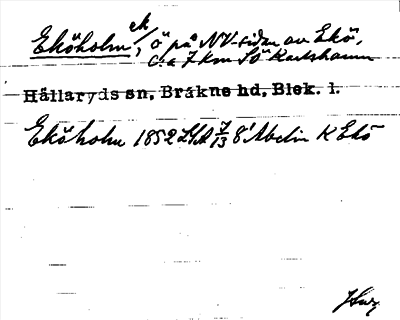 Eköholm ek/, ö på NV-sidan av Ekö,
c:a 7 km SÖ Karlshamn
Hällaryds sn, Bräkne hd, Blek. l.
Eköholm 1852 LSA 7/13 8' Abelin K Ekö